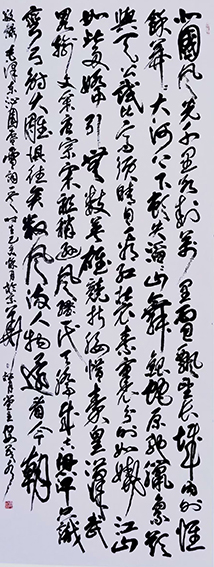 北國風光千里冰封萬里雪飄望長城内外惟
餘莽莽大河上下頓失滔滔山舞銀蛇原馳蠟象欲
與天公試比高須晴日看紅裝素裹分外妖嬈江山
如此多嬌引無數英雄競折腰惜秦皇漢武
略輸文采唐宗宋祖稍遜風騷一代天驕成吉思汗只識
彎弓射大雕俱往矣數風流人物還看今朝
敬錄毛澤東沁園春雪詞一首